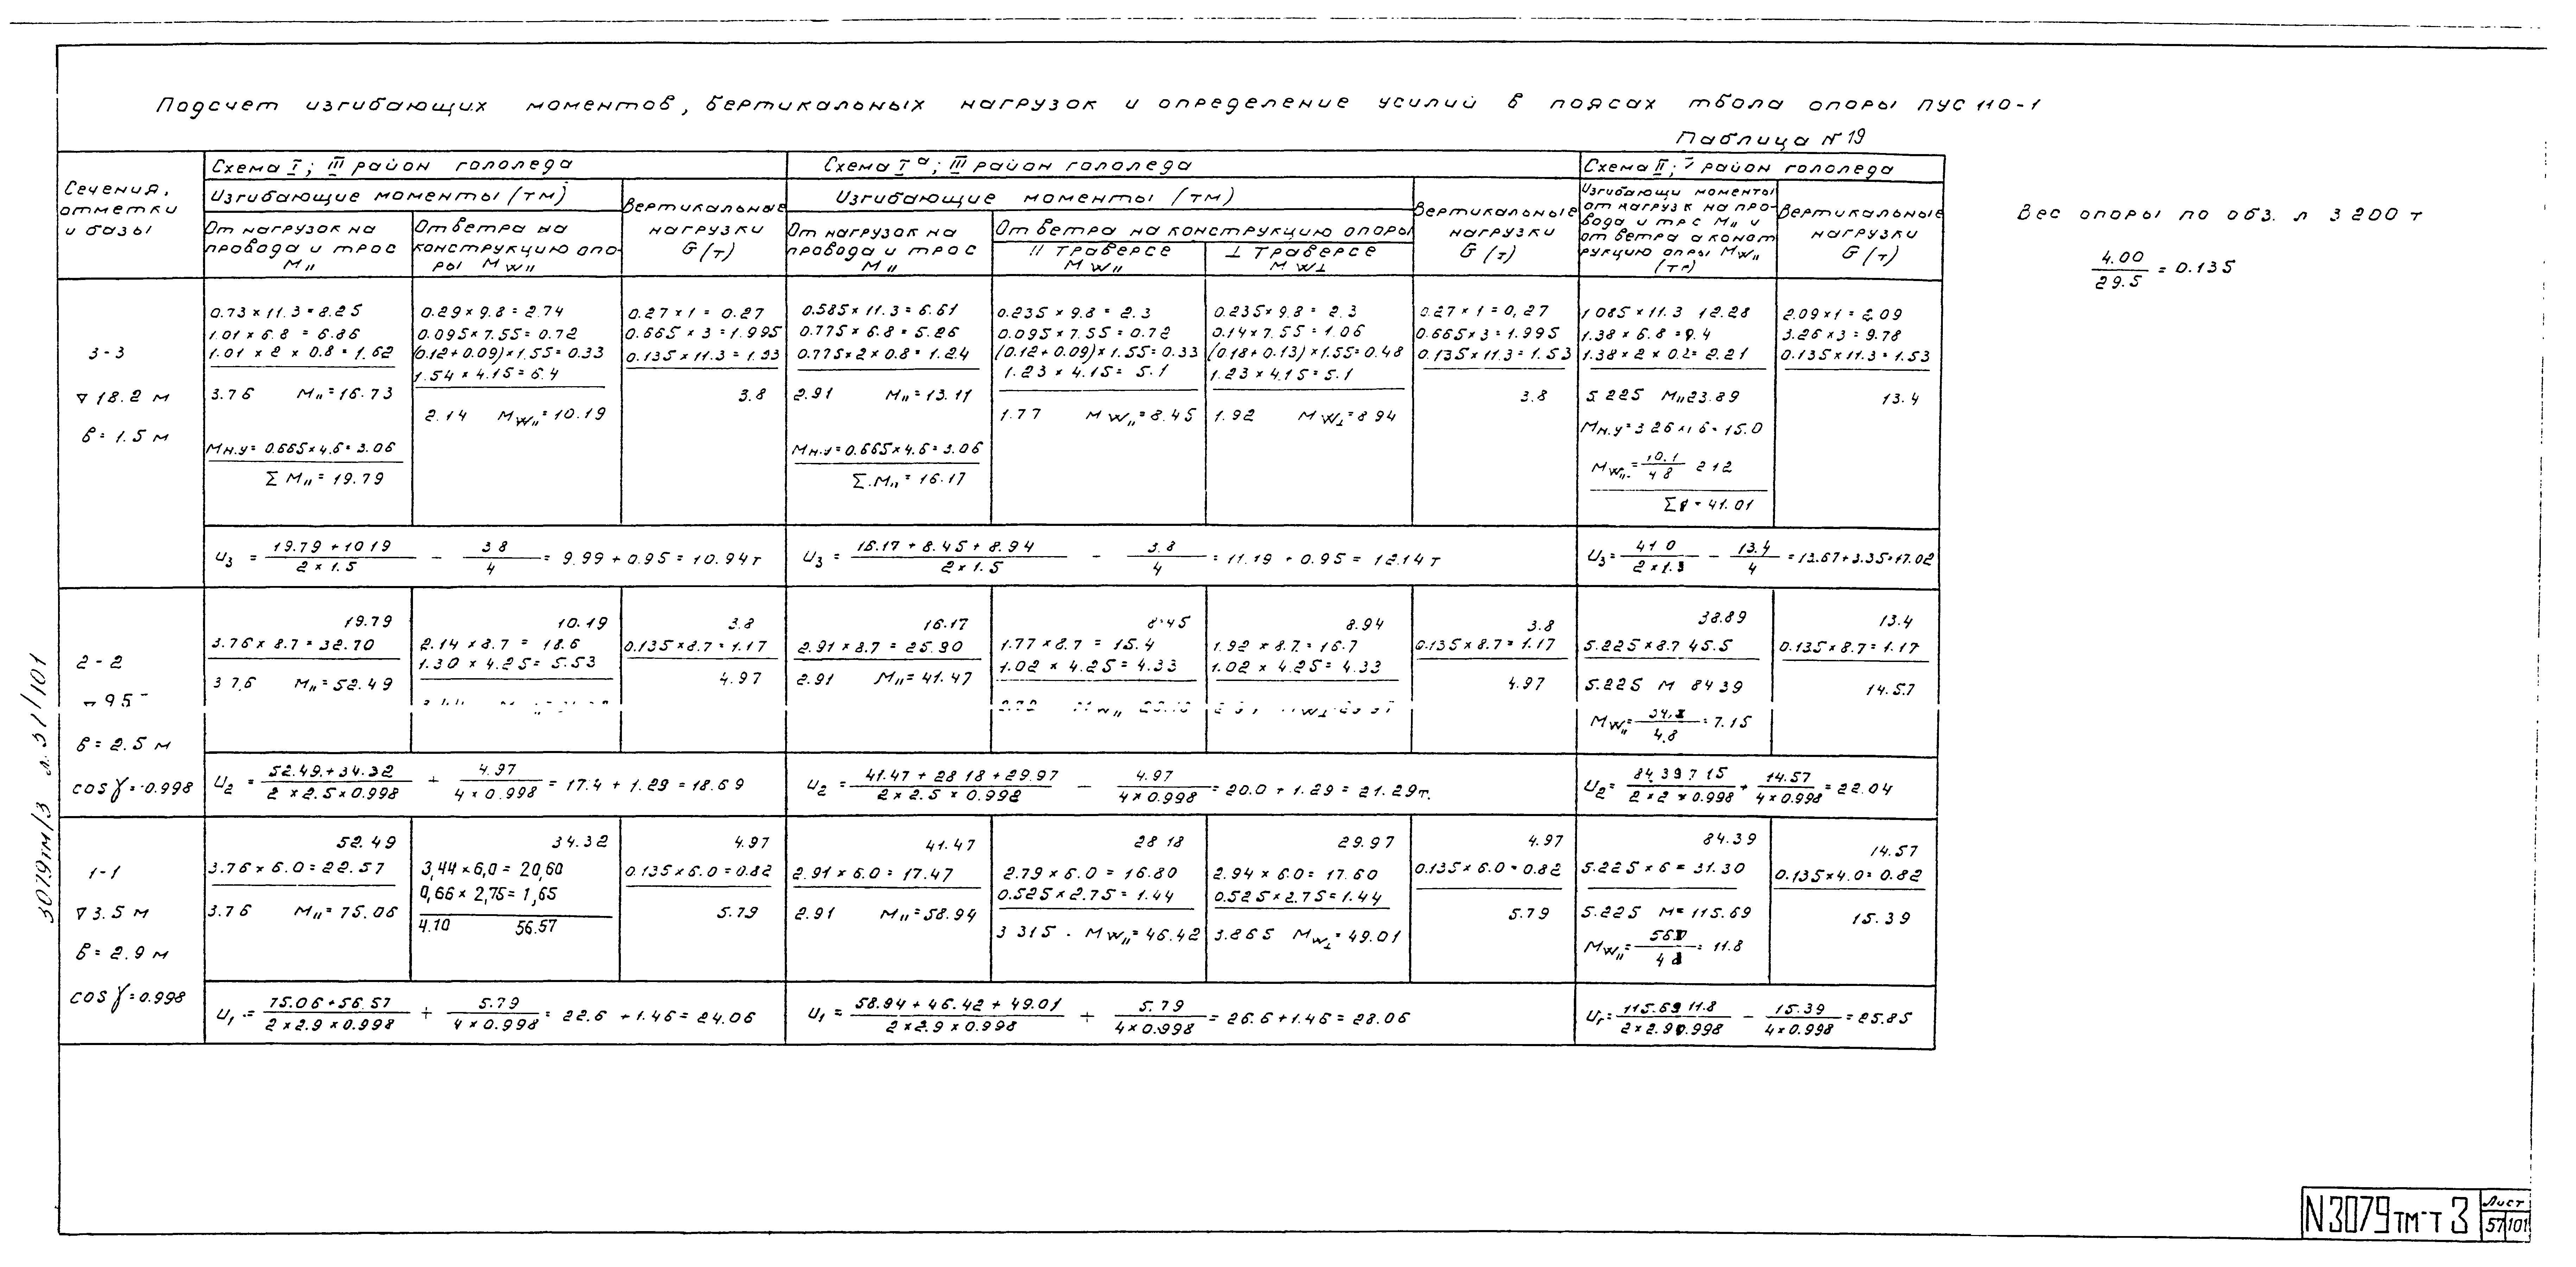 Подсчет изгибающих моментов, вертикальных нагрузок и определение усилий в поясах ствола опоры ПУС 110-1
Таблица N 19
Сечения, отметки и базы
Схема I; III район гололеда
Изгибающие моменты (тм)
От нагрузок на провода и трос M∥
От ветра на конструкцию опоры MW∥
Вертикальные нагрузки G(т)
Схема Iа; III район гололеда
Изгибающие моменты (тм)
От нагрузок на провода и трос M∥
От ветра на конструкцию опоры
∥ траверсе MW∥
⊥ траверсе MW⊥
Вертикальные нагрузки G(т)
Схема II; район гололеда
Изгибающи моменты от нагрузк на провода и трс M∥ и от ветра а конструкцию опры MW∥
Вертикальные нагрузки G(т)
Вес опоры по обз. л 3 200 т
4.00 / 29.5 = 0.135
3-3
▽ 18.2 м
в = 1.5 м
0.73 × 11.3 = 8.25
1.01 × 6.8 = 6.86
1.01 × 2 × 0.8 = 1.62
3.76 M∥ = 16.73
Mн.у = 0.665 × 4.6 = 3.06
Σ M∥ = 19.79
0.29 × 9.8 = 2.74
0.095 × 7.55 = 0.72
(0.12 + 0.09) × 1.55 = 0.33
1.54 × 4.15 = 6.4
2.14 MW∥ = 10.19
0.27 × 1 = 0.27
0.665 × 3 = 1.995
0.135 × 11.3 = 1.53
3.8
0.585 × 11.3 = 6.61
0.775 × 6.8 = 5.26
0.775 × 2 × 0.8 = 1.24
2.91 M∥ = 13.11
Mн.у = 0.665 × 4.6 = 3.06
Σ M∥ = 16.17
0.235 × 9.8 = 2.3
0.095 × 7.55 = 0.72
(0.12 + 0.09) × 1.55 = 0.33
1.23 × 4.15 = 5.1
1.77 MW∥ = 8.45
0.235 × 9.8 = 2.3
0.14 × 7.55 = 1.06
(0.18 + 0.13) × 1.55 = 0.48
1.23 × 4.15 = 5.1
1.92 MW⊥ = 8 94
0.27 × 1 = 0,27
0.665 × 3 = 1.995
0.135 × 11.3 = 1.53
3.8
1 085 × 11.3 12.28
1.38 × 6.8 = 9.4
1.38 × 2 × 0.8 = 2.21
5 225 M∥ 23.89
Mн.у = 3 26 × 4 6 = 15.0
MW∥ = 10.1 / 4 8 2 12
Σ = 41.01
2.09 × 1 = 2.09
3.26 × 3 = 9.78
0.135 × 11.3 = 1.53
13.4
U3 = (19.79 + 10 19) / (2 × 1.5) − 3 8 / 4 = 9.99 + 0.95 = 10.94 т
U3 = (16.17 + 8.45 + 8.94) / (2 × 1.5) − 3.8 / 4 = 11.19 + 0.95 = 12.14 т
U3 = 41 0 / (2 × 1.5) − 13.4 / 4 = 13.67 + 3.35 = 17.02
2-2
▽ 9 5
в = 2.5 м
cos γ = 0.998
19.79
3.76 × 8.7 = 32.70
3 7,6 M∥ = 52.49
10.19
2.14 × 8.7 = 18.6
1.30 × 4.25 = 5.53
3.8
0.135 × 8.7 = 1.17
4.97
16.17
2.91 × 8.7 = 25.30
2.91 M∥ = 41.47
8.45
1.77 × 8.7 = 15.4
1.02 × 4.25 = 4.33
8.94
1.92 × 8.7 = 16.7
1.02 × 4.25 = 4.33
3.8
0.135 × 8.7 = 1.17
4.97
38.89
5.225 × 8.7 45.5
5.225 M 84 39
MW∥ = 34.3 / 4.8 = 7.15
13.4
0.135 × 8.7 = 1.17
14.57
U2 = (52.49 + 34.32) / (2 × 2.5 × 0.998) + 4.97 / (4 × 0.998) = 17.4 + 1.29 = 18.69
U2 = (41.47 + 28 18 + 29.97) / (2 × 2.5 × 0.998) − 4.97 / (4 × 0.998) = 20.0 + 1.29 = 21.29 т.
U2 = 84,39 7 15 / (2 × 2 × 0.998) + 14.57 / (4 × 0.998) = 22.04
1-1
▽ 3.5 м
в = 2.9 м
cos γ = 0.998
52.49
3.76 × 6.0 = 22.57
3.76 M∥ = 75.06
34.32
3,44 × 6,0 = 20,60
0,66 × 2,75 = 1,65
4.10 56.57
4.97
0.135 × 6.0 = 0.82
5.79
41.47
2.91 × 6.0 = 17.47
2.91 M∥ = 58.94
28 18
2.79 × 6.0 = 16.80
0.525 × 2.75 = 1.44
3 315 MW∥ = 46.42
29.97
2.94 × 6.0 = 17.60
0.525 × 2.75 = 1.44
3.865 MW⊥ = 49.01
4.97
0.135 × 6.0 = 0.82
5.79
84.39
5.225 × 6 = 31.30
5.225 M = 115.69
MW∥ = 11.8
14.57
0.135 × 4.0 = 0.82
15.39
U1 = (75.06 + 56.57) / (2 × 2.9 × 0.998) + 5.79 / (4 × 0.998) = 22.6 + 1.46 = 24.06
U1 = (58.94 + 46.42 + 49.01) / (2 × 2.9 × 0.998) + 5.79 / (4 × 0.998) = 26.6 + 1.46 = 28.06
U1 = 115.69 11.8 / (2 × 2.9 0.998) − 15.39 / (4 × 0.998) = 25.85
3079тм/3 л. 51/101
N3079тм-т3
Лист
57 101